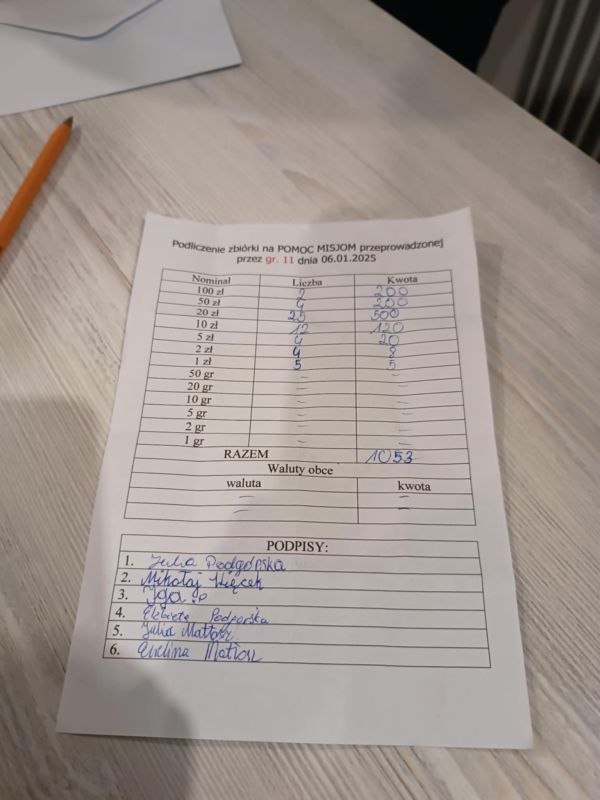 Podliczenie zbiórki na POMOC MISJOM przeprowadzonej
przez gr. 11 dnia 06.01.2025
Nominał Liczba Kwota
100 zł 2 200
50 zł 4 200
20 zł 25 500
10 zł 12 120
5 zł 4 20
2 zł 4 8
1 zł 5 5
50 gr – –
20 gr – –
10 gr – –
5 gr – –
2 gr – –
1 gr – –
RAZEM 1053
Waluty obce
waluta kwota
– –
– –
PODPISY:
1. Julia Podgórska
2. Mikołaj
3. Iga P
4. Elżbieta Podgórska
5. Julia Matłosz
6. Ewelina Matłosz